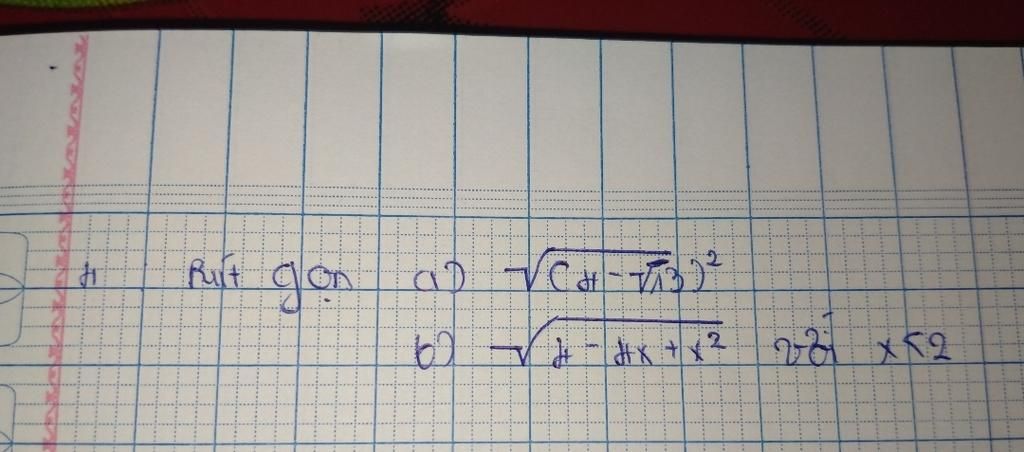 4 Rút gọn a) √(4 - √13)²
b) √4 - 4x + x² với x < 2